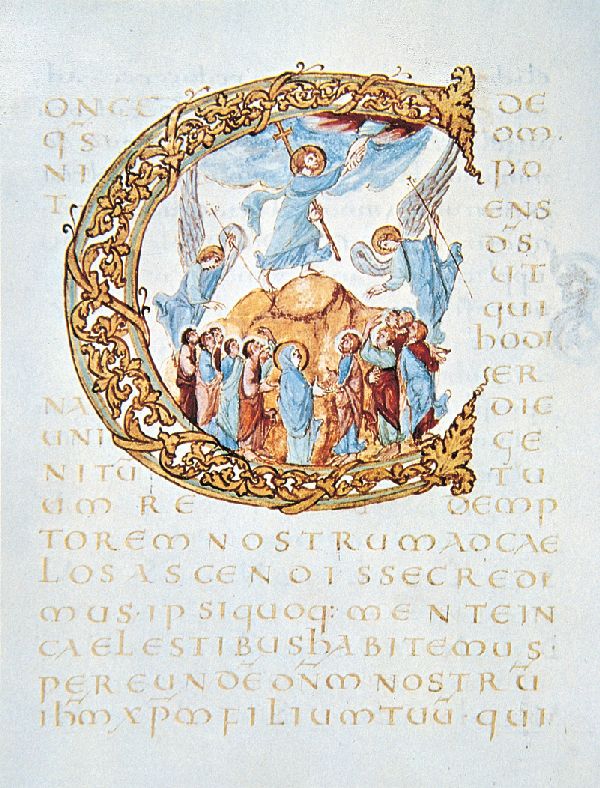 CONCE DE
q's OM
NI PO
T ENS
D̄S
UT
QUI
hODI
ER
NA DIE
UNI GE
NITU TU
UM RE DEMP
TOREM NOSTRUM AD CAE
LOS ASCENDISSE CREDE
MUS· IPSI QUOQ: MENTE IN
CAELESTIBUS hABITEMUS·
PER EUNDĒ DN̄M NOSTRŪ
ih̄m xp̄m FILIUM TUŪ· QUI